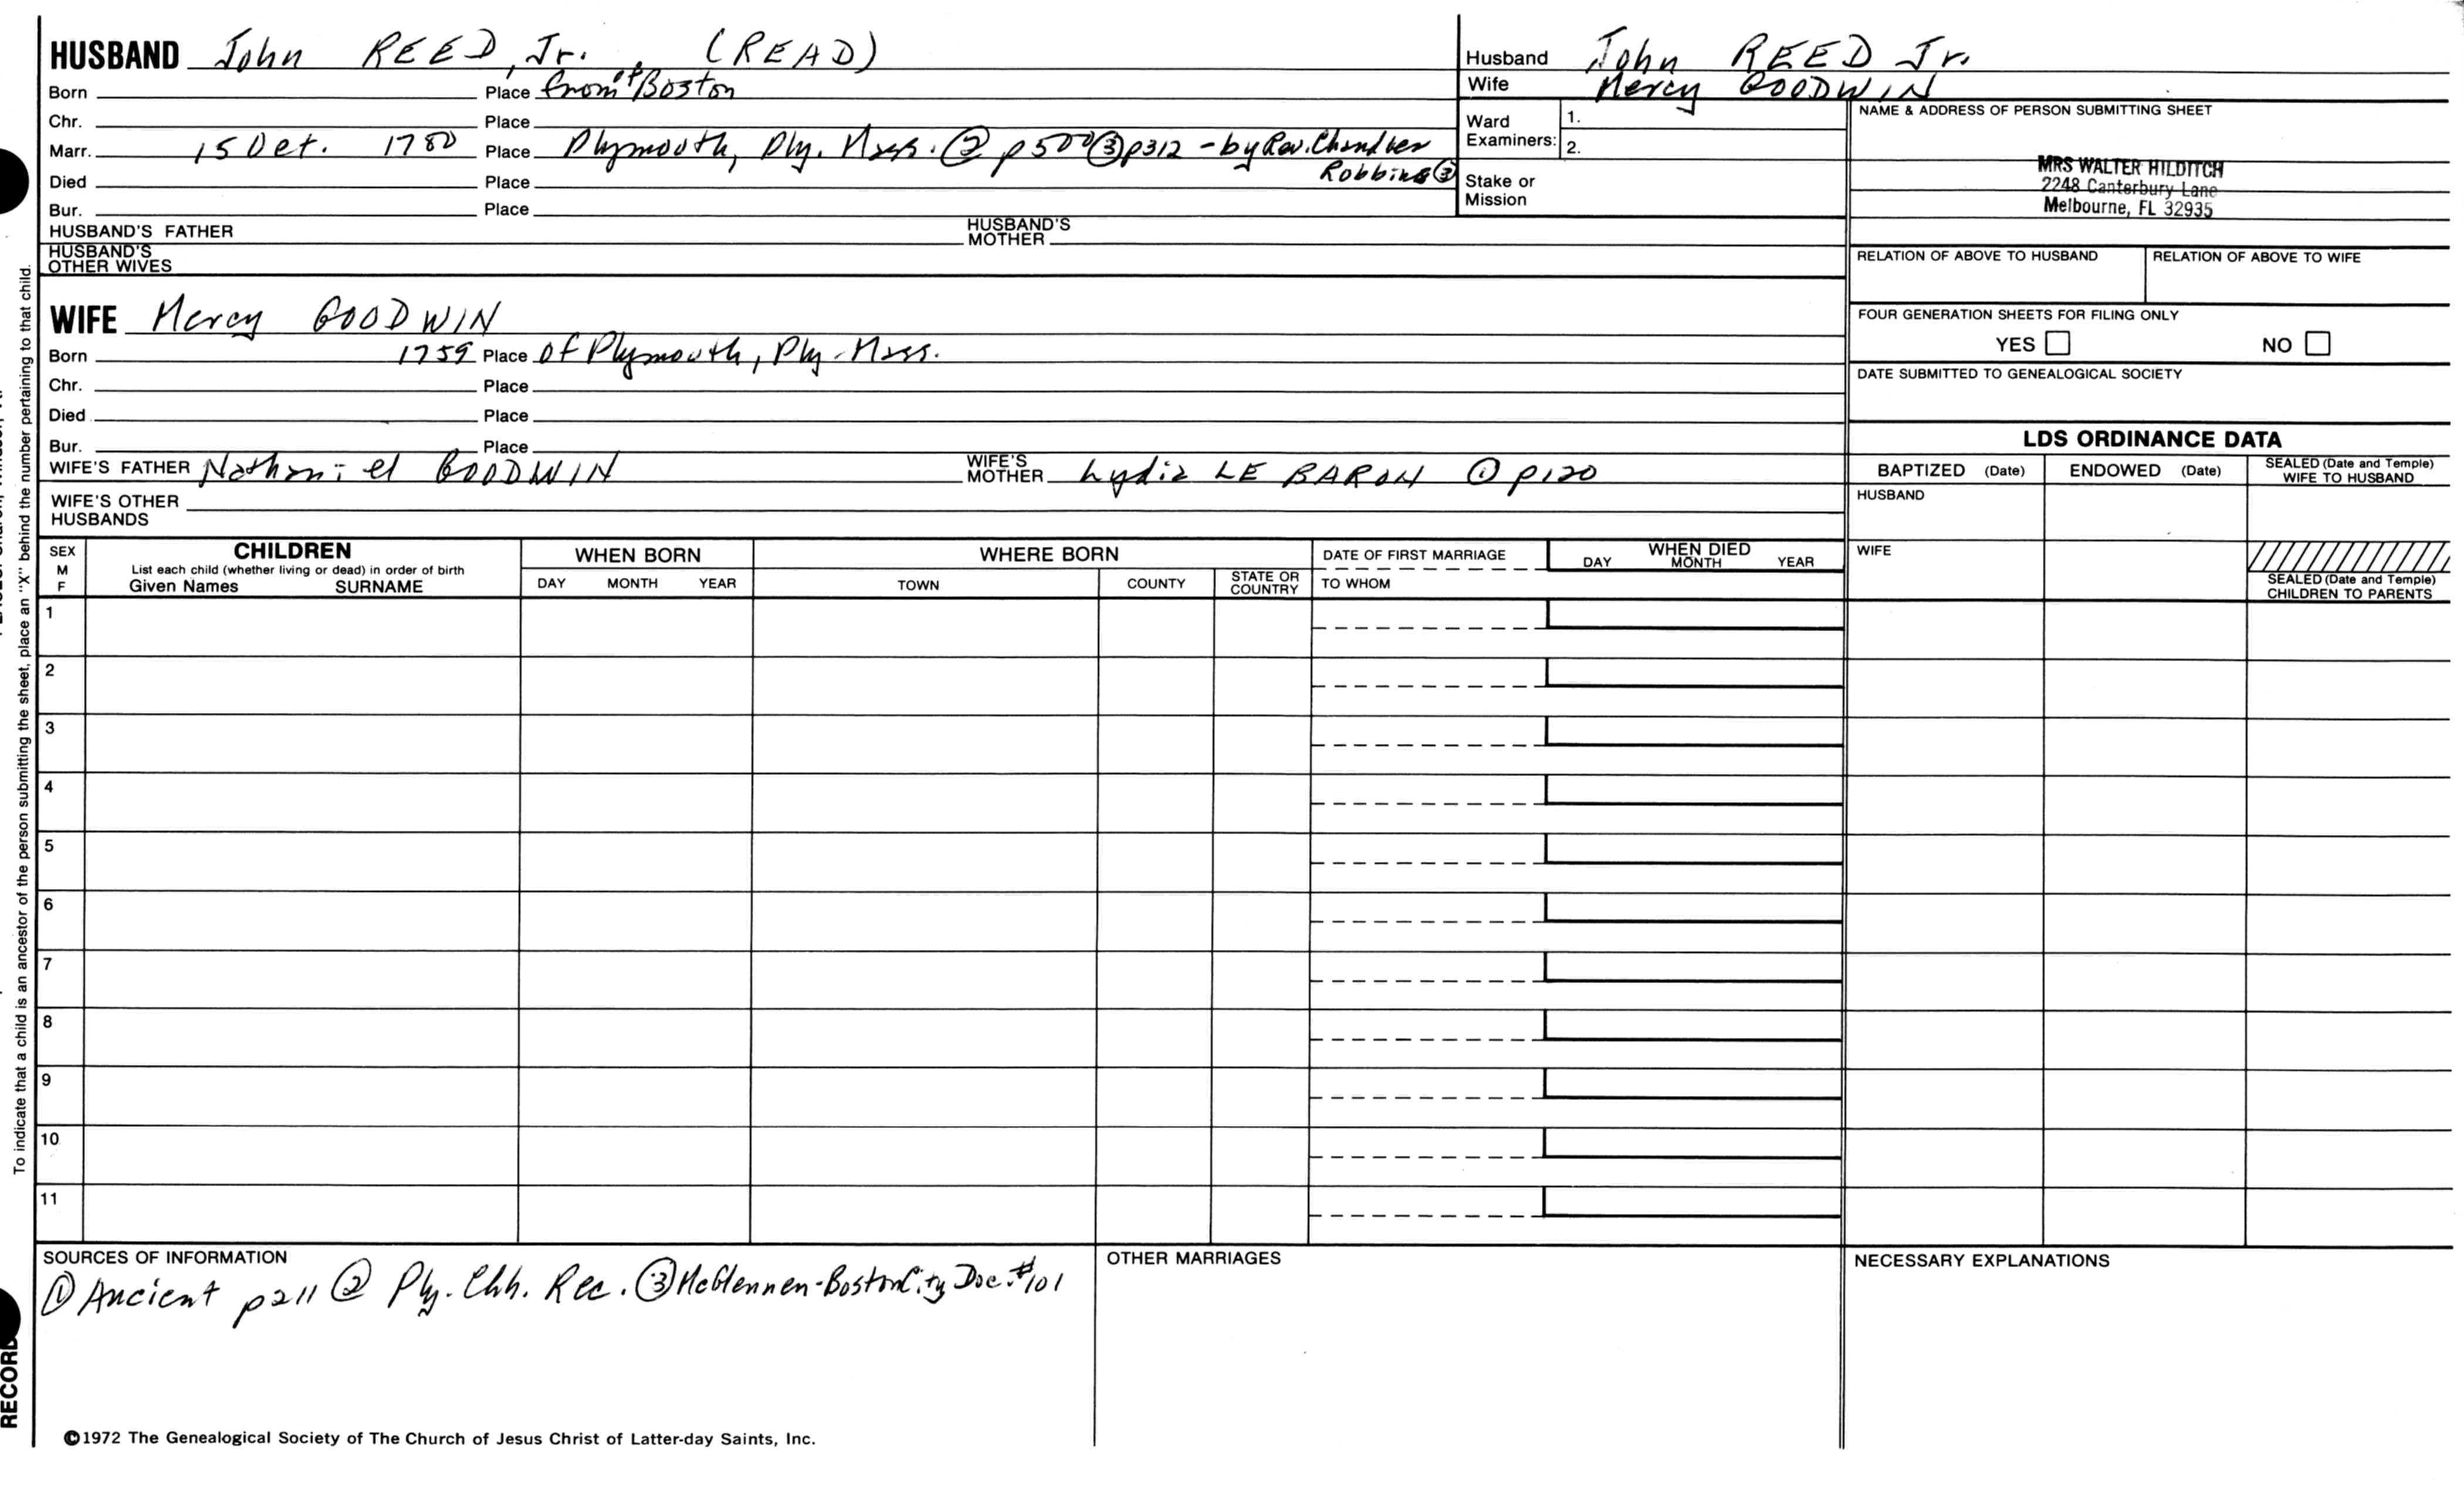 HUSBAND John REED, Jr. (READ)
Born Place from of Boston
Chr. Place
Marr. 15 Oct. 1780 Place Plymouth, Ply. Mass. ② p500 ③ p312 - by Rev. Chandler
Robbins ③
Died Place
Bur. Place
HUSBAND'S FATHER HUSBAND'S MOTHER
HUSBAND'S OTHER WIVES
Husband John REED Jr.
Wife Mercy GOODWIN
Ward Examiners: 1.
2.
Stake or Mission
NAME & ADDRESS OF PERSON SUBMITTING SHEET
MRS WALTER HILDITCH
2248 Canterbury Lane
Melbourne, FL 32935
RELATION OF ABOVE TO HUSBAND RELATION OF ABOVE TO WIFE
FOUR GENERATION SHEETS FOR FILING ONLY
YES NO
DATE SUBMITTED TO GENEALOGICAL SOCIETY
WIFE Mercy GOODWIN
Born 1759 Place of Plymouth, Ply. Mass.
Chr. Place
Died Place
Bur. Place
WIFE'S FATHER Nathaniel GOODWIN WIFE'S MOTHER Lydia LE BARON ① p120
WIFE'S OTHER HUSBANDS
LDS ORDINANCE DATA
BAPTIZED (Date) ENDOWED (Date) SEALED (Date and Temple) WIFE TO HUSBAND
HUSBAND
WIFE
SEALED (Date and Temple) CHILDREN TO PARENTS
SEX M F
CHILDREN
List each child (whether living or dead) in order of birth
Given Names SURNAME
WHEN BORN
DAY MONTH YEAR
WHERE BORN
TOWN COUNTY STATE OR COUNTRY
DATE OF FIRST MARRIAGE
TO WHOM
WHEN DIED
DAY MONTH YEAR
1
2
3
4
5
6
7
8
9
10
11
SOURCES OF INFORMATION
① Ancient p211 ② Ply. Chh. Rec. ③ McGlennen-Boston City Doc. #101
OTHER MARRIAGES
NECESSARY EXPLANATIONS
©1972 The Genealogical Society of The Church of Jesus Christ of Latter-day Saints, Inc.
To indicate that a child is an ancestor of the person submitting the sheet, place an "X" behind the number pertaining to that child.
RECORD